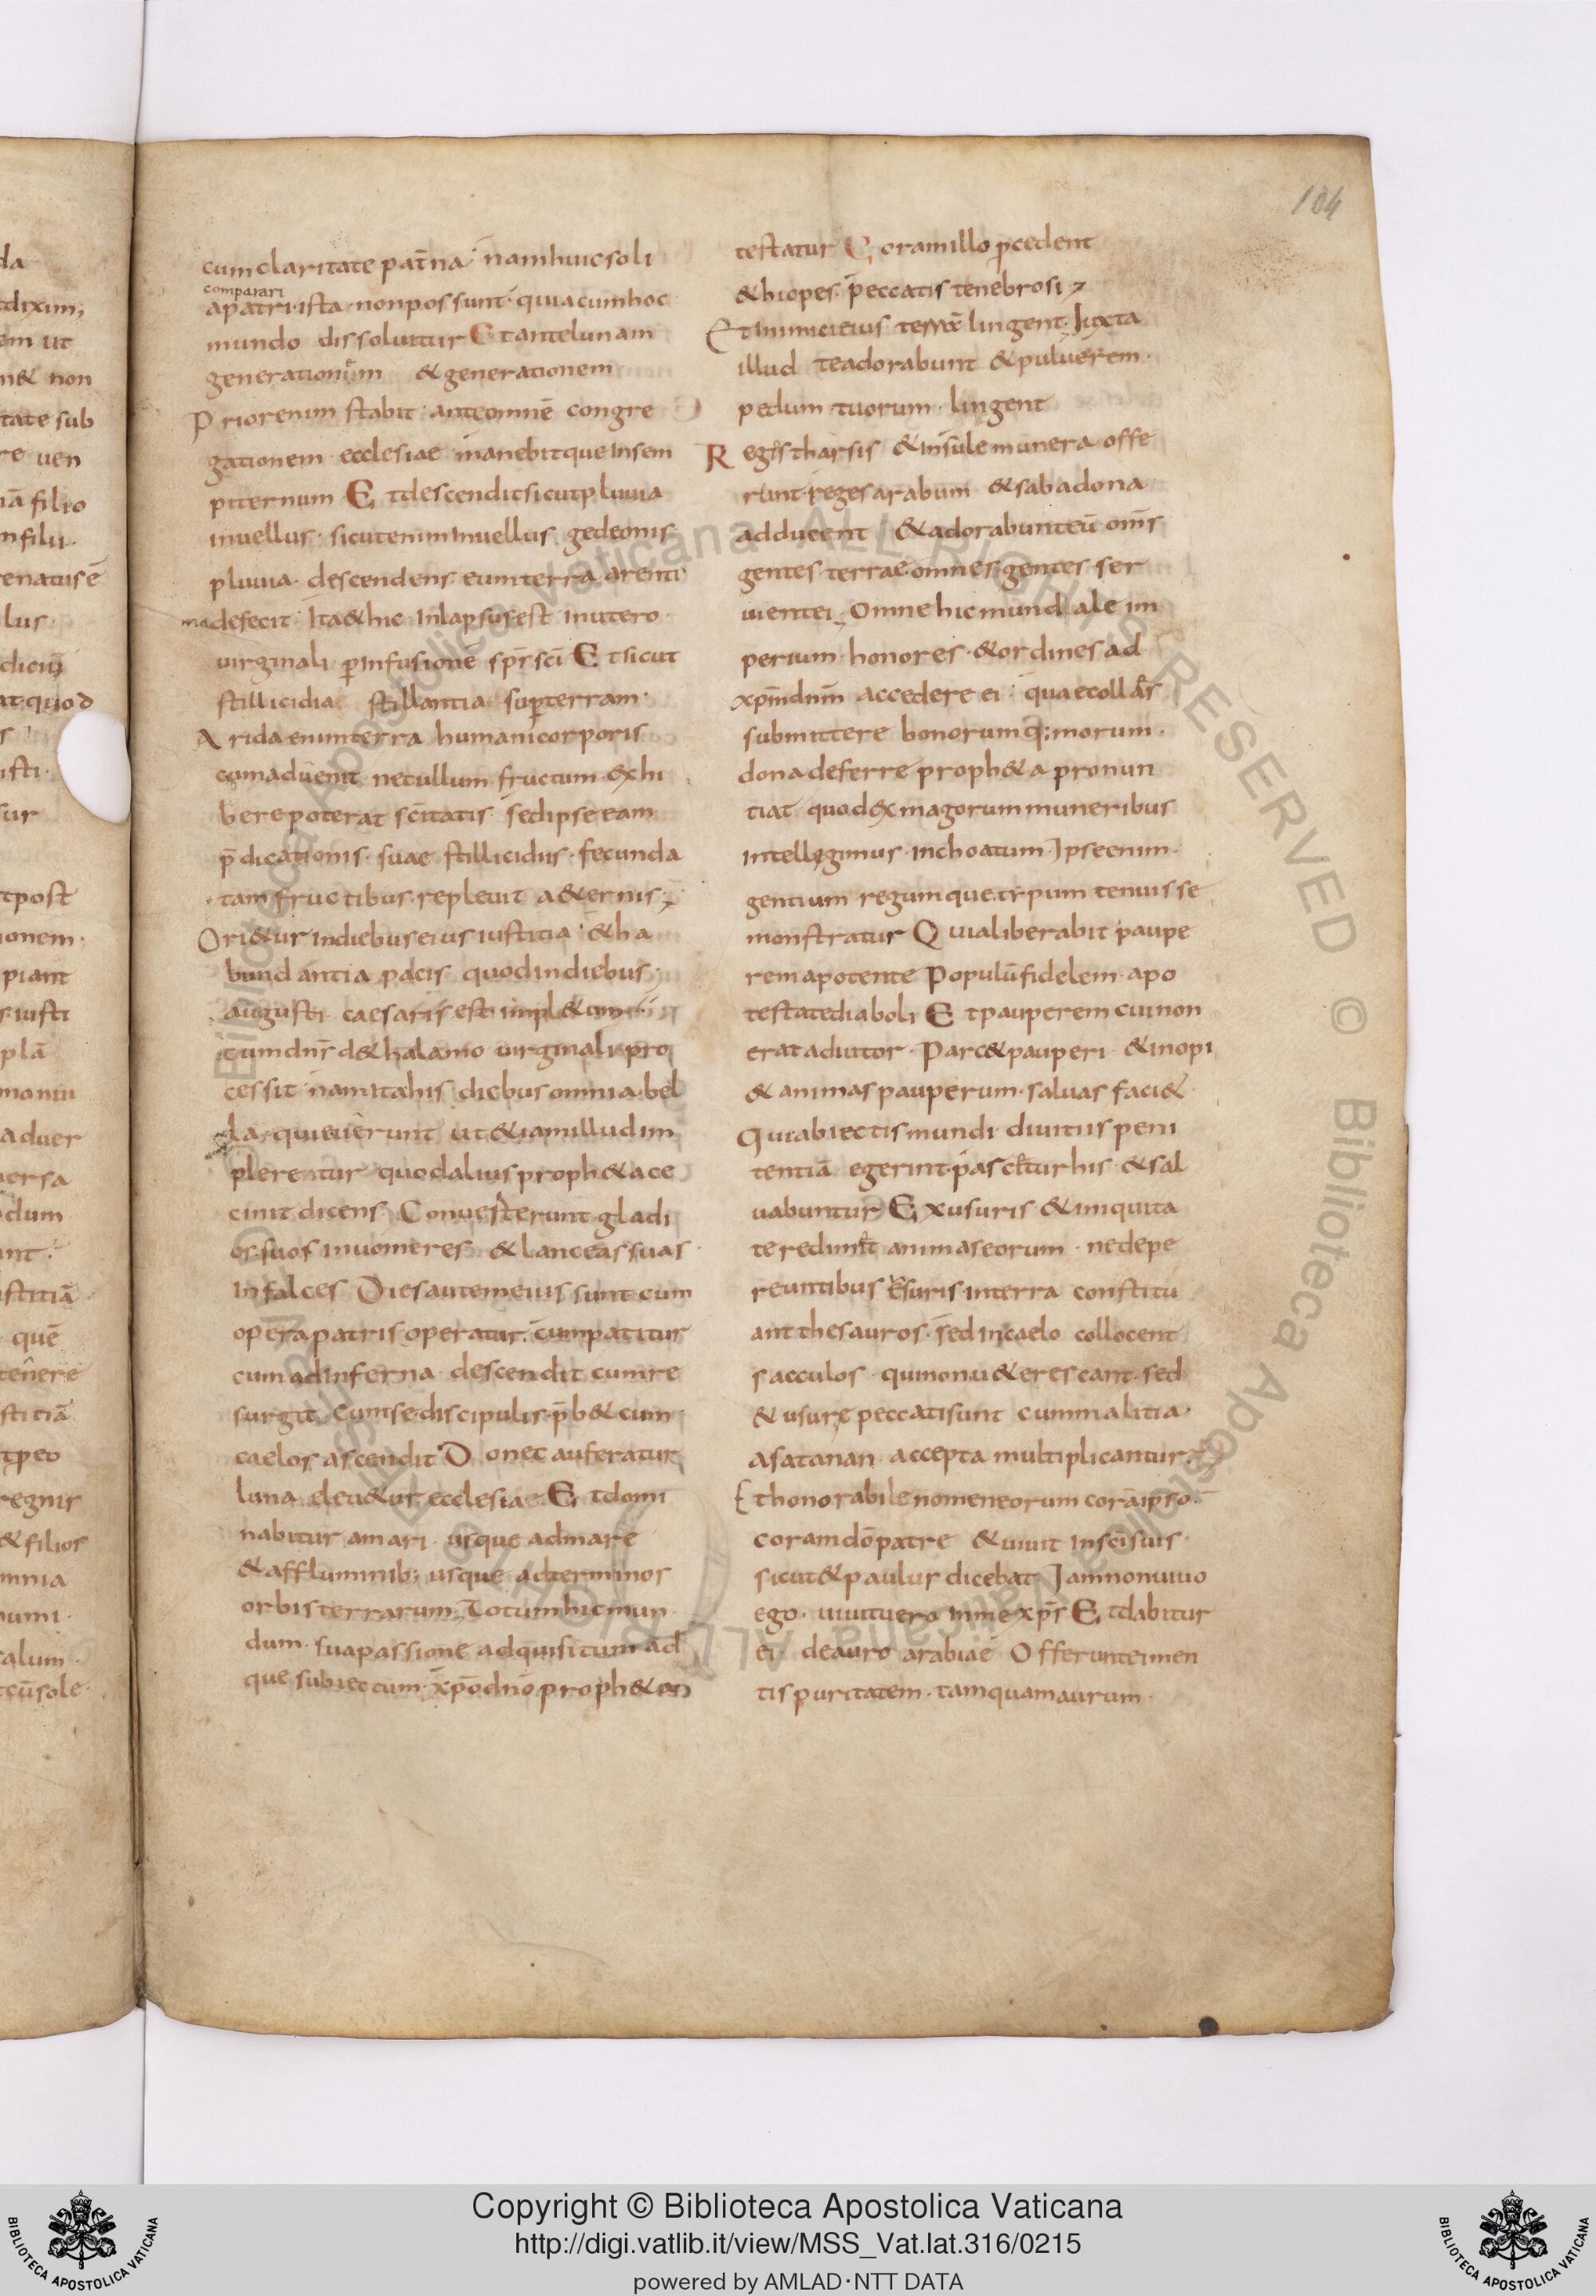 104
cum claritate pat̄na nam huic soli
comparari
apatri ista non possunt quia cum hoc
mundo dissoluitur Et ante lunam
generationem & generationem
Prior enim stabit ante omnē congre
gationem ecclesiae manebitque insem
piternum Et descendit sicut pluuia
inuellus sicut enim inuellus gedeonis
pluuia descendens cum terra arenti
defecit Ita & hic inlapsus est inutero
uirginali p infusionē sp̄s sc̄i Et sicut
stillicidia stillantia sup terram
Arida enim terra humani corporis
nec ullum fructum exhi
bere poterat sc̄itatis sed ipse eam
p̄dicationis suae stillicidiis fecunda
tam fructibus repleuit a&ernis;
Ori&ur in diebus eius iustitia & ha
bundantia pacis quod in diebus
augusti caesaris est impl&um
cum dn̄s de thalamo uirginali pro
cessit nam ita his diebus omnia bel
la quieuerunt ut &iam illud im
pleretur quod alius proph&a ce
cinit dicens Conuerterunt gladi
os suos inuomeres & lanceas suas
In falces Dies autem eius sunt cum
opera patris operatur cum patitur
cum ad inferna descendit cum re
surgit cum se discipulis p̄b& cum
caelos ascendit Donec auferatur
luna eleu&ur ecclesiae Et domi
nabitur amari usque ad mare
& affluminib; usque ad terminos
orbis terrarum Totum hic mun
dum sua passione adquisitum ad
que subiectum xp̄o dn̄o proph&a
testatur Coram illo pcedent
&hiopes peccatis tenebrosi;
Et inimici eius terrā lingent Iuxta
illud te adorabunt & puluerem
pedum tuorum lingent
Reges tharsis & insule munera offe
runt reges arabum & saba dona
adducent & adorabunt eū om̄s
gentes terrae omnes gentes ser
uient ei Omne hic mundale im
perium honores & ordines ad
xpm̄ dnm̄ accedere ei quae colla
submittere bonorum q; morum
dona deferre proph&a pronun
tiat quod ex magorum muneribus
intellegimus inchoatum Ipse enim
gentium regumque typum tenuisse
monstratur Quia liberabit paupe
rem apotente Populū fidelem apo
testate diaboli Et pauperem cui non
erat adiutor Parc& pauperi & inopi
& animas pauperum saluas faci&
Qui abiectis mundi diuitiis peni
tentiā egerint parcetur his & sal
uabuntur Ex usuris & iniquita
te redimet animas eorum ne de pe
reuntibus usuris in terra constitu
ant thesauros sed in caelo collocent
sacculos qui non u&erescant sed
& usure peccati sunt cum malitia
a satanan accepta multiplicantur
Et honorabile nomen eorum corā ipso
coram dō patre & uiuit in sc̄is suis
sicut & paulus dicebat Iam non uiuo
ego uiuit uero in me xp̄s Et dabitur
ei de auro arabiae Offerunt ei men
tis puritatem tamquam aurum
Copyright © Biblioteca Apostolica Vaticana
http://digi.vatlib.it/view/MSS_Vat.lat.316/0215
powered by AMLAD·NTT DATA
BIBLIOTECA APOSTOLICA VATICANA
BIBLIOTECA APOSTOLICA VATICANA